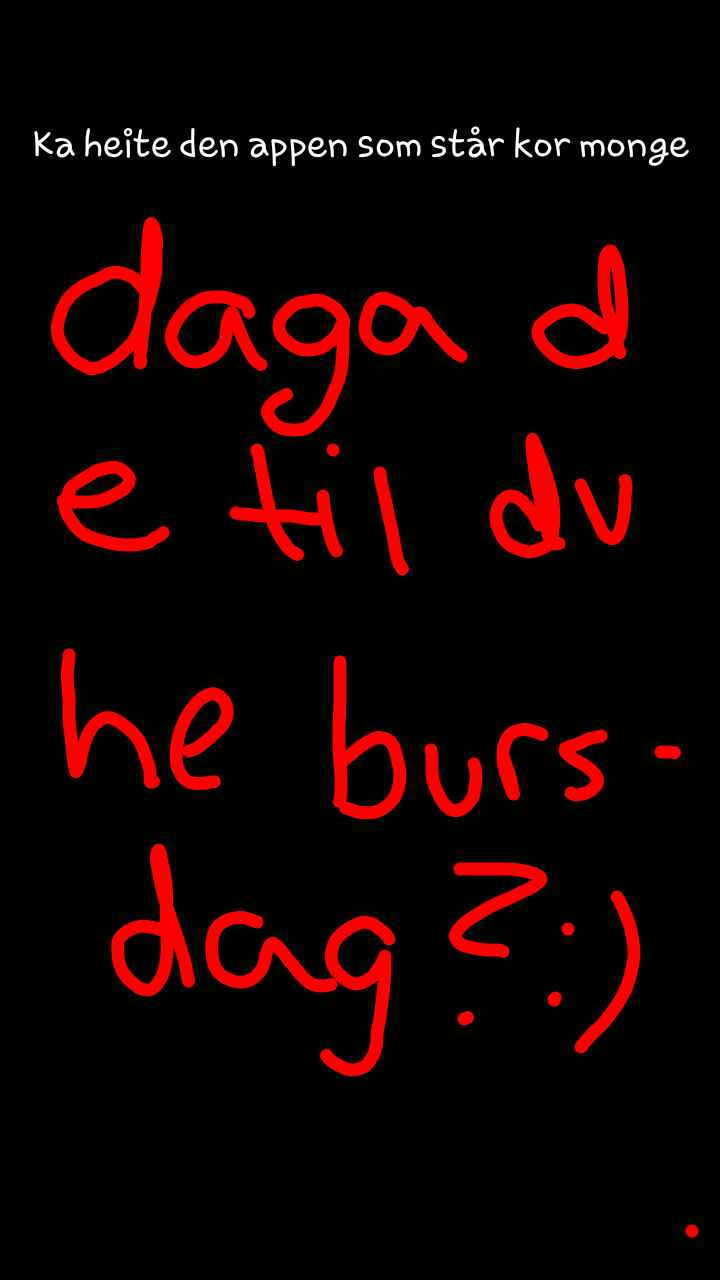 Ka heite den appen som står kor monge
daga d
e til du
he burs-
dag?:)